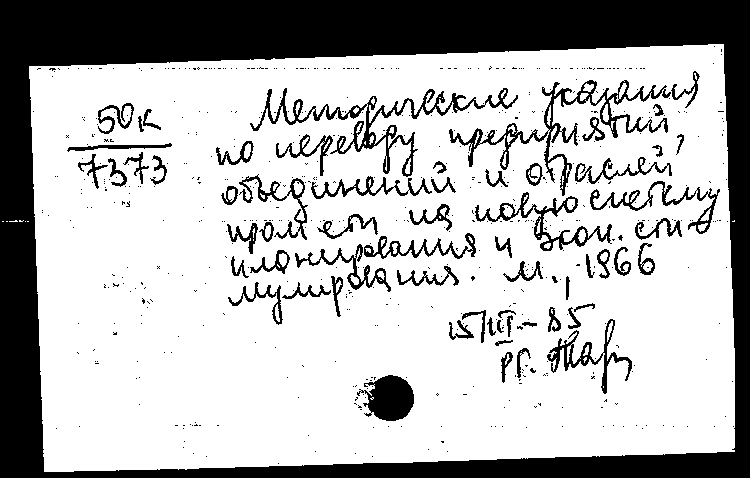 50к
7373
Методические указания
по переводу предприятий,
объединений и отраслей
пром сти на новую систему
планирования и экон. сти-
мулирования. М., 1966
15/III-85
рг.